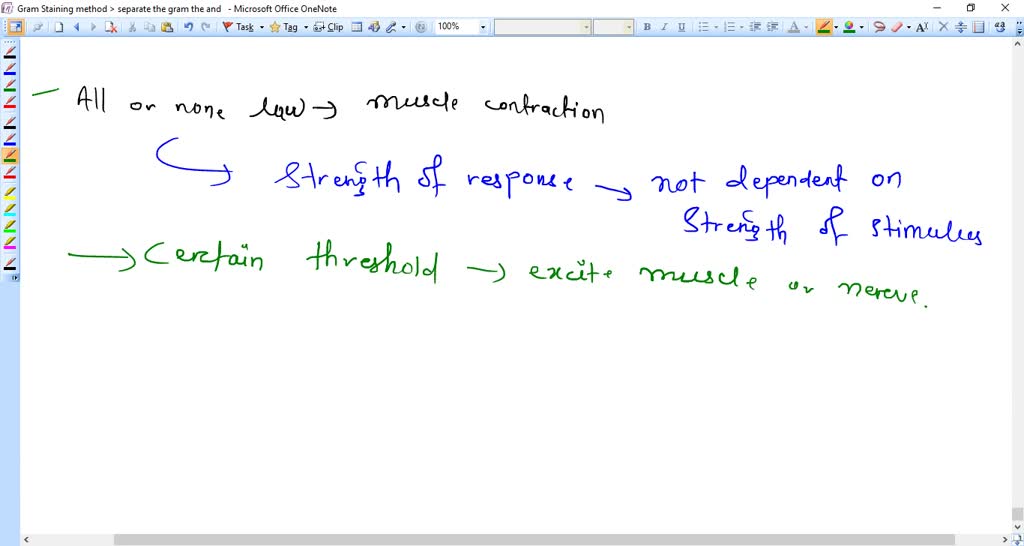 Gram Staining method > separate the gram the and - Microsoft Office OneNote
Task Tag Clip 100% B I U
All or none law → muscle contraction
Strength of response → not dependent on
Strength of stimulus
→ Certain threshold → excite muscle or nerve.